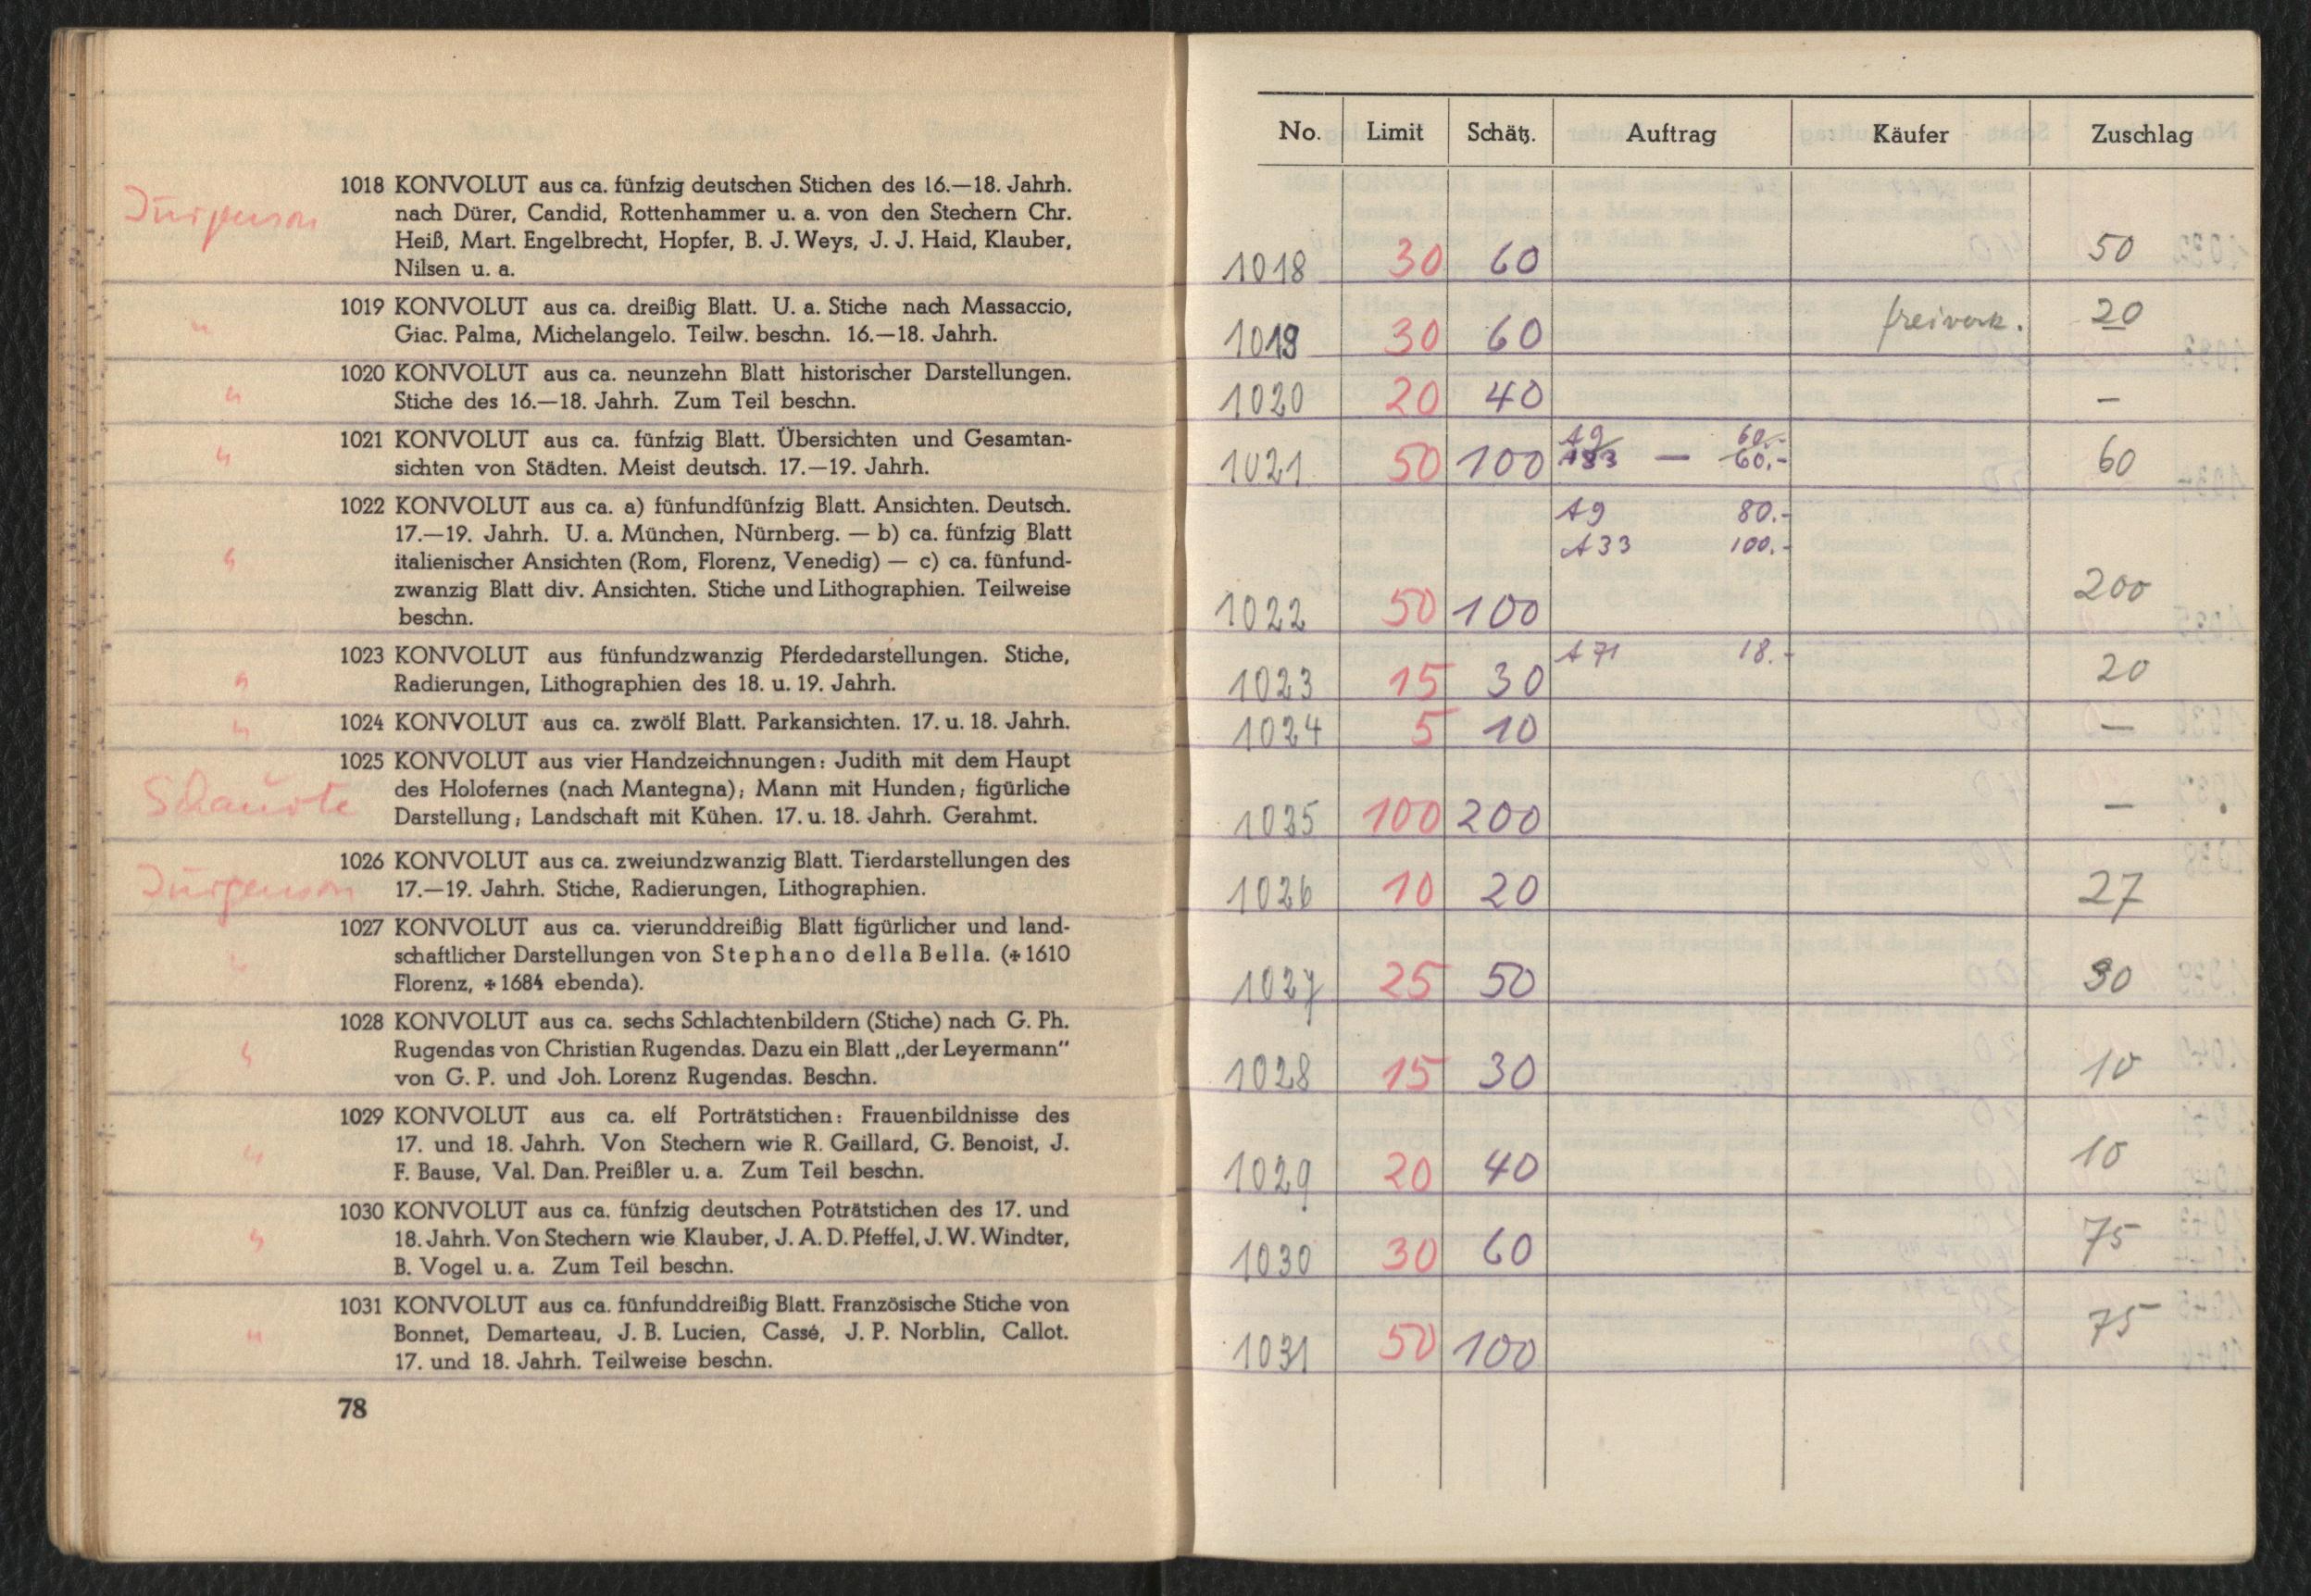 1018 KONVOLUT aus ca. fünfzig deutschen Stichen des 16.—18. Jahrh.
nach Dürer, Candid, Rottenhammer u. a. von den Stechern Chr.
Heiß, Mart. Engelbrecht, Hopfer, B. J. Weys, J. J. Haid, Klauber,
Nilsen u. a.
1019 KONVOLUT aus ca. dreißig Blatt. U. a. Stiche nach Massaccio,
Giac. Palma, Michelangelo. Teilw. beschn. 16.—18. Jahrh.
1020 KONVOLUT aus ca. neunzehn Blatt historischer Darstellungen.
Stiche des 16.—18. Jahrh. Zum Teil beschn.
1021 KONVOLUT aus ca. fünfzig Blatt. Übersichten und Gesamtan-
sichten von Städten. Meist deutsch. 17.—19. Jahrh.
1022 KONVOLUT aus ca. a) fünfundfünfzig Blatt. Ansichten. Deutsch.
17.—19. Jahrh. U. a. München, Nürnberg. — b) ca. fünfzig Blatt
italienischer Ansichten (Rom, Florenz, Venedig) — c) ca. fünfund-
zwanzig Blatt div. Ansichten. Stiche und Lithographien. Teilweise
beschn.
1023 KONVOLUT aus fünfundzwanzig Pferdedarstellungen. Stiche,
Radierungen, Lithographien des 18. u. 19. Jahrh.
1024 KONVOLUT aus ca. zwölf Blatt. Parkansichten. 17. u. 18. Jahrh.
1025 KONVOLUT aus vier Handzeichnungen: Judith mit dem Haupt
des Holofernes (nach Mantegna); Mann mit Hunden; figürliche
Darstellung; Landschaft mit Kühen. 17. u. 18. Jahrh. Gerahmt.
1026 KONVOLUT aus ca. zweiundzwanzig Blatt. Tierdarstellungen des
17.—19. Jahrh. Stiche, Radierungen, Lithographien.
1027 KONVOLUT aus ca. vierunddreißig Blatt figürlicher und land-
schaftlicher Darstellungen von Stephano della Bella. (✶ 1610
Florenz, ✝ 1684 ebenda).
1028 KONVOLUT aus ca. sechs Schlachtenbildern (Stiche) nach G. Ph.
Rugendas von Christian Rugendas. Dazu ein Blatt „der Leyermann"
von G. P. und Joh. Lorenz Rugendas. Beschn.
1029 KONVOLUT aus ca. elf Porträtstichen: Frauenbildnisse des
17. und 18. Jahrh. Von Stechern wie R. Gaillard, G. Benoist, J.
F. Bause, Val. Dan. Preißler u. a. Zum Teil beschn.
1030 KONVOLUT aus ca. fünfzig deutschen Poträtstichen des 17. und
18. Jahrh. Von Stechern wie Klauber, J. A. D. Pfeffel, J. W. Windter,
B. Vogel u. a. Zum Teil beschn.
1031 KONVOLUT aus ca. fünfunddreißig Blatt. Französische Stiche von
Bonnet, Demarteau, J. B. Lucien, Cassé, J. P. Norblin, Callot.
17. und 18. Jahrh. Teilweise beschn.
78
No. Limit Schätz. Auftrag Käufer Zuschlag
1018 30 60 50
1019 30 60 freiverk. 20
1020 20 40 —
A9 60.-
1021 50 100 A33 — 60.- 60
A9 80.-
A33 100.-
1022 50 100 200
A71 18.-
1023 15 30 20
1024 5 10 —
1025 100 200 —
1026 10 20 27
1027 25 50 30
1028 15 30 10
1029 20 40 10
1030 30 60 75
1031 50 100 75